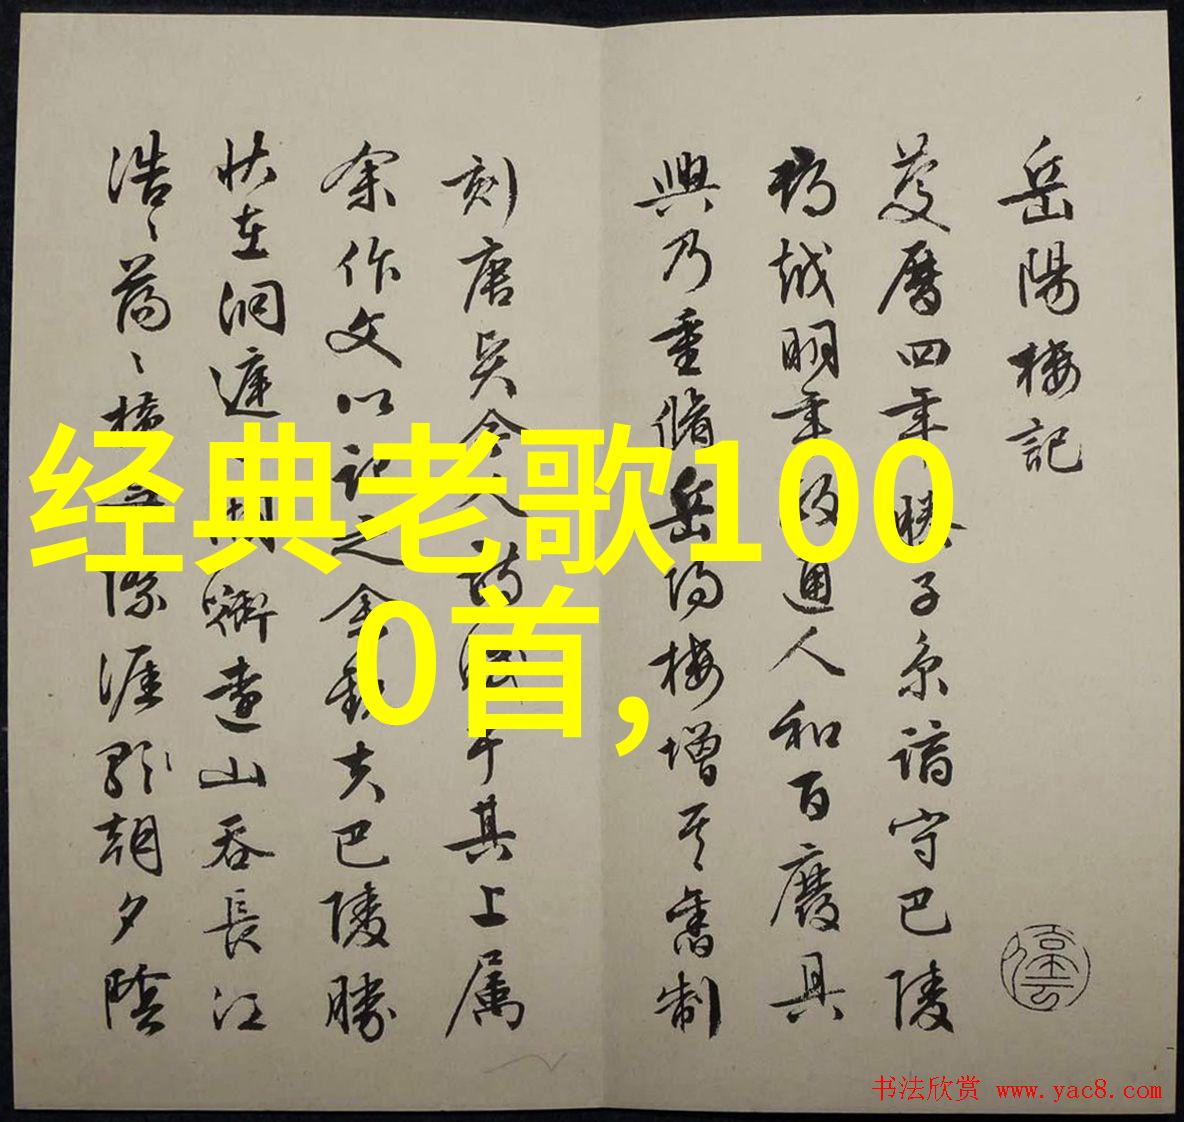 岳陽樓記
慶曆四年 滕子京謫守巴陵
郡 越明年 政通人和百廢具
興乃重脩岳陽樓增其舊制
刻唐 今人 于其上屬
余作文以記之余觀夫巴陵勝
狀在洞庭一湖銜遠山吞長江
浩〻蕩〻橫 際涯 朝夕陰
经典老歌100
0首,
书法欣赏 www.yac8.com